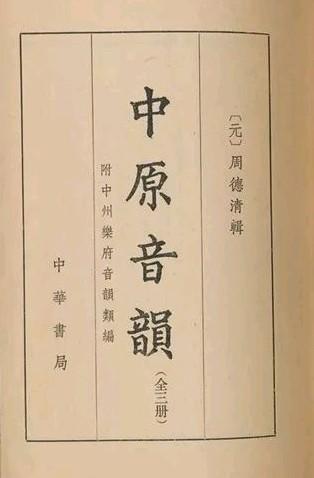 〔元〕周德清輯
中原音韻
（全三册）
附中州樂府音韻類編
中華書局